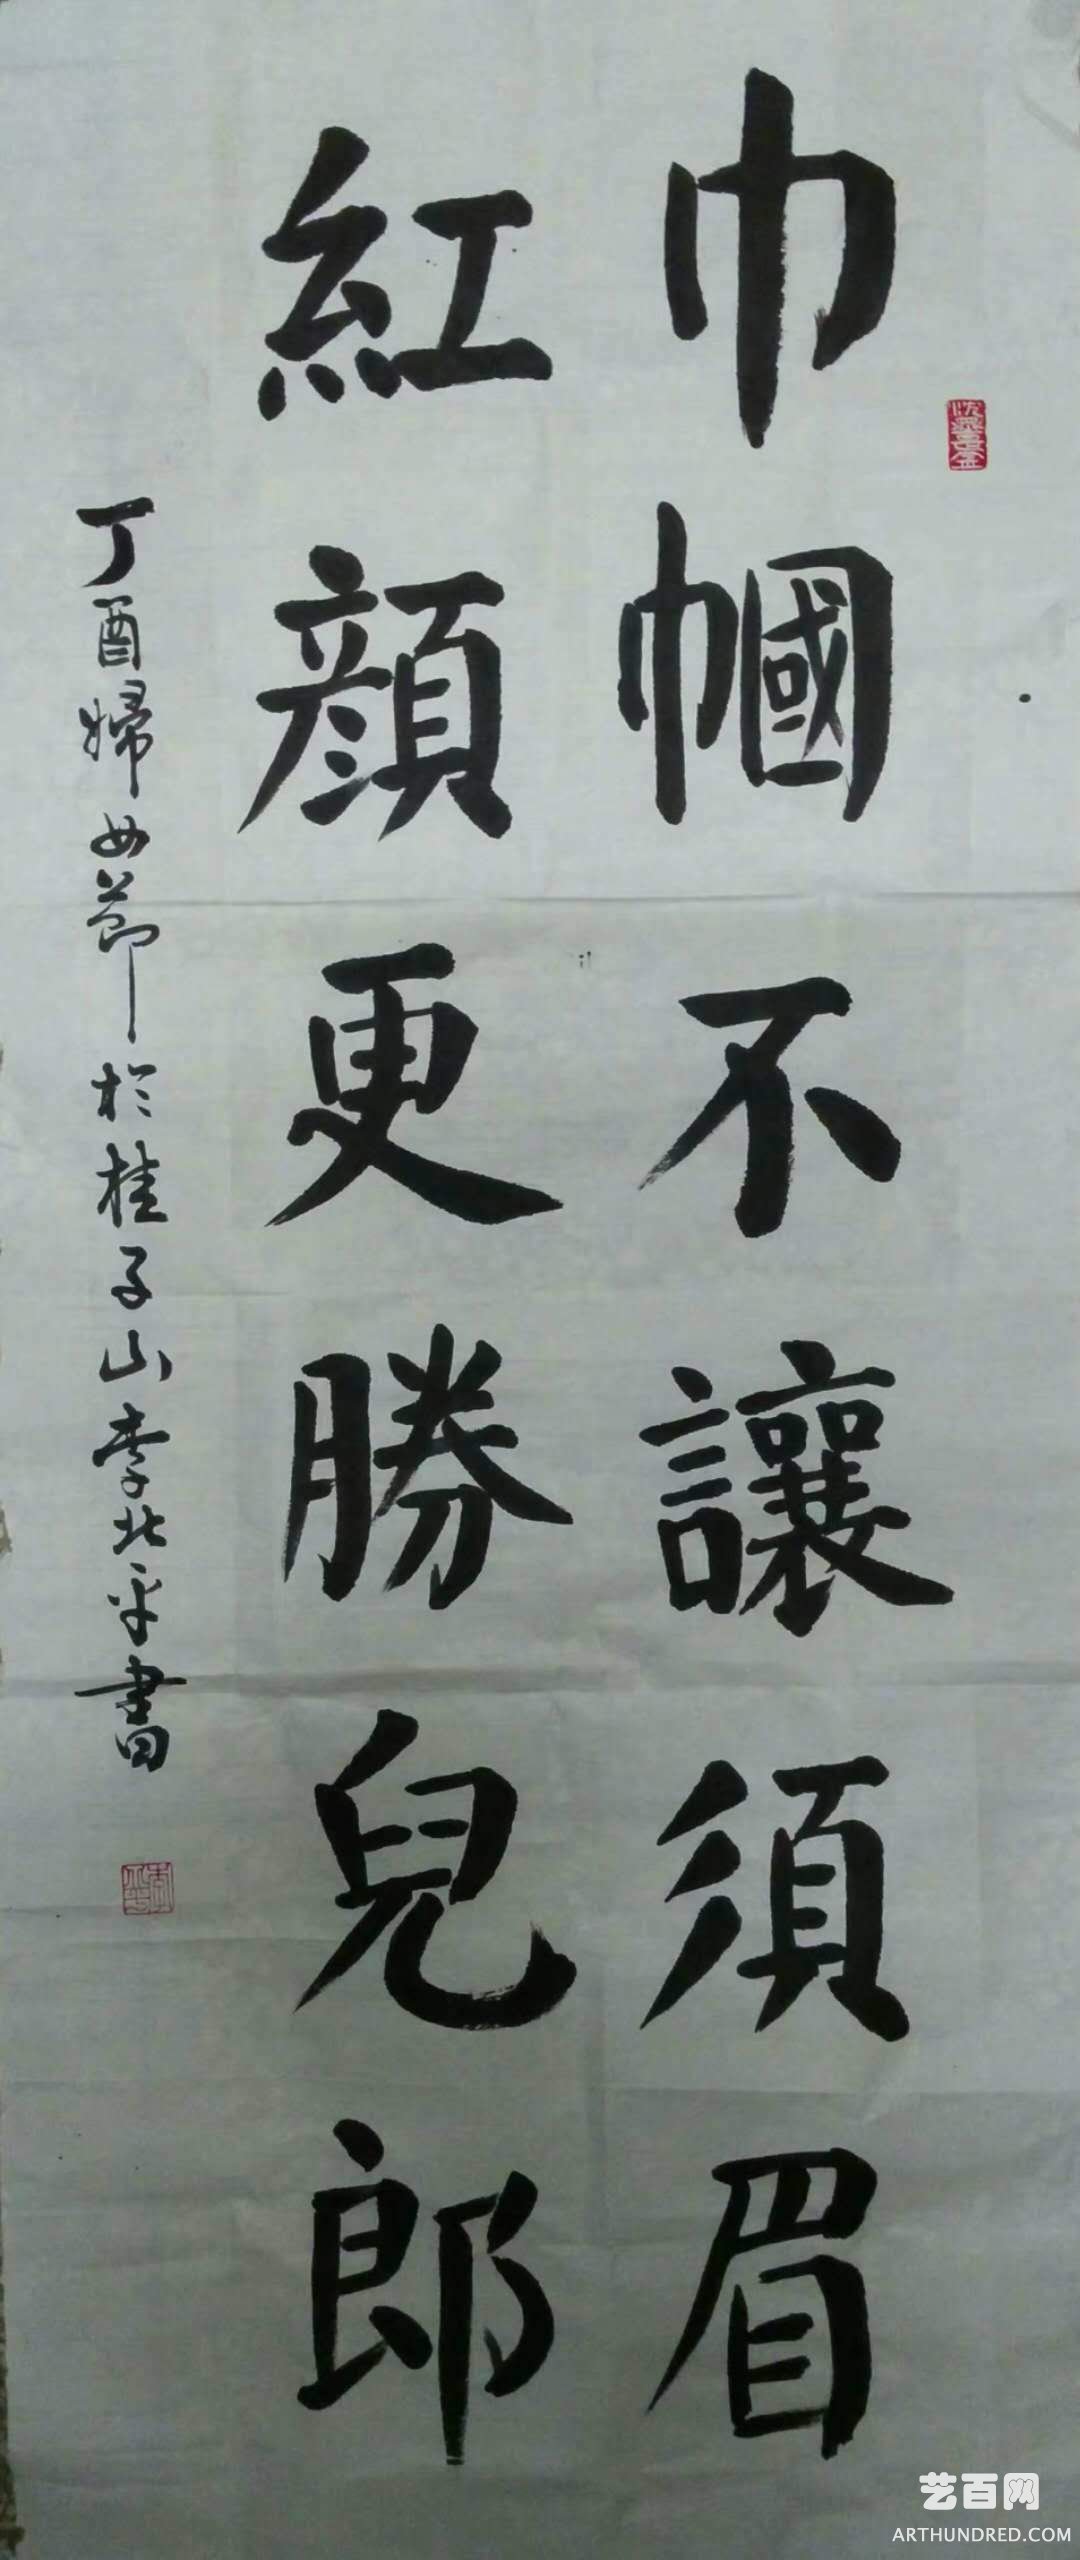 巾幗不讓須眉
紅顏更勝兒郎
丁酉婦女節於桂子山李北平書
艺百网
ARTHUNDRED.COM